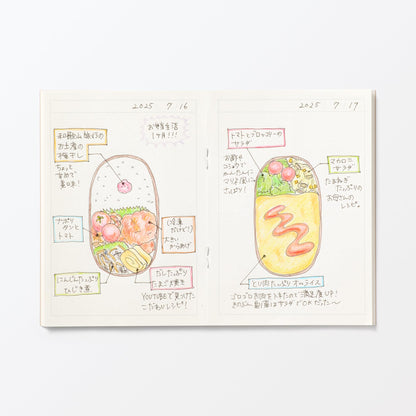 2025 7 16
お弁当生活
1ヶ月!!!
和歌山旅行の
お土産の
梅干し
ちょっと
甘めで
美味!
ナポリ
タンと
トマト
(冷凍
だけど!)
大きい
からあげ
にんじんたっぷり
ひじき煮
だしたっぷり
たまご焼き
YOUTUBEで見つけた
こだわりレシピ!
2025 7 17
トマトとブロッコリーの
サラダ
お酢や
コショウで
さっぱり!
マカロニ
サラダ
たまねぎ
たっぷりの
お母さんの
レシピ。
とり肉たっぷりオムライス
ゴロゴロお肉を入れたので満足度UP!